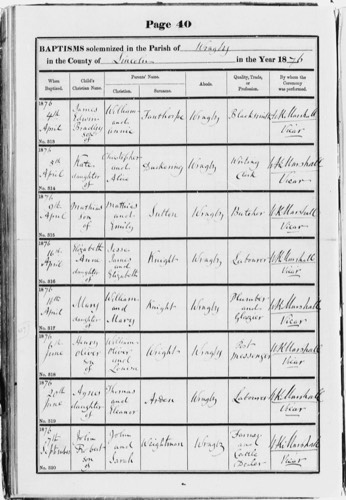 Page 40
BAPTISMS solemnized in the Parish of Wragby
in the County of Lincoln in the Year 1876
When Baptized. Child's Christian Name. Parents' Names. Christian. Surname. Abode. Quality, Trade, or Profession. By whom the Ceremony was performed.
1876 4th April No. 513 James Edwin Bradley son of William and Annie Fanthorpe Wragby Blacksmith W.K. Marshall Vicar
1876 9th April No. 514 Kate daughter of Christopher and Alice Duckering Wragby Writing Clerk W.K. Marshall Vicar
1876 9th April No. 515 Mathias son of Mathias and Emily Sutton Wragby Butcher W.K. Marshall Vicar
1876 16th April No. 516 Elizabeth Anne daughter of Jesse James and Elizabeth Knight Wragby Labourer W.K. Marshall Vicar
1876 April No. 517 Mary daughter of William and Mary Knight Wragby Plumber and Glazier W.K. Marshall Vicar
1876 6th June No. 518 Henry Oliver son of William Oliver and Louisa Wright Wragby Post messenger W.K. Marshall Vicar
1876 20th June No. 519 Agnes daughter of Thomas and Eleanor Arden Wragby Labourer W.K. Marshall Vicar
1876 7th September No. 520 John son of John and Sarah Weightman Wragby Farmer and Cattle Dealer W.K. Marshall Vicar